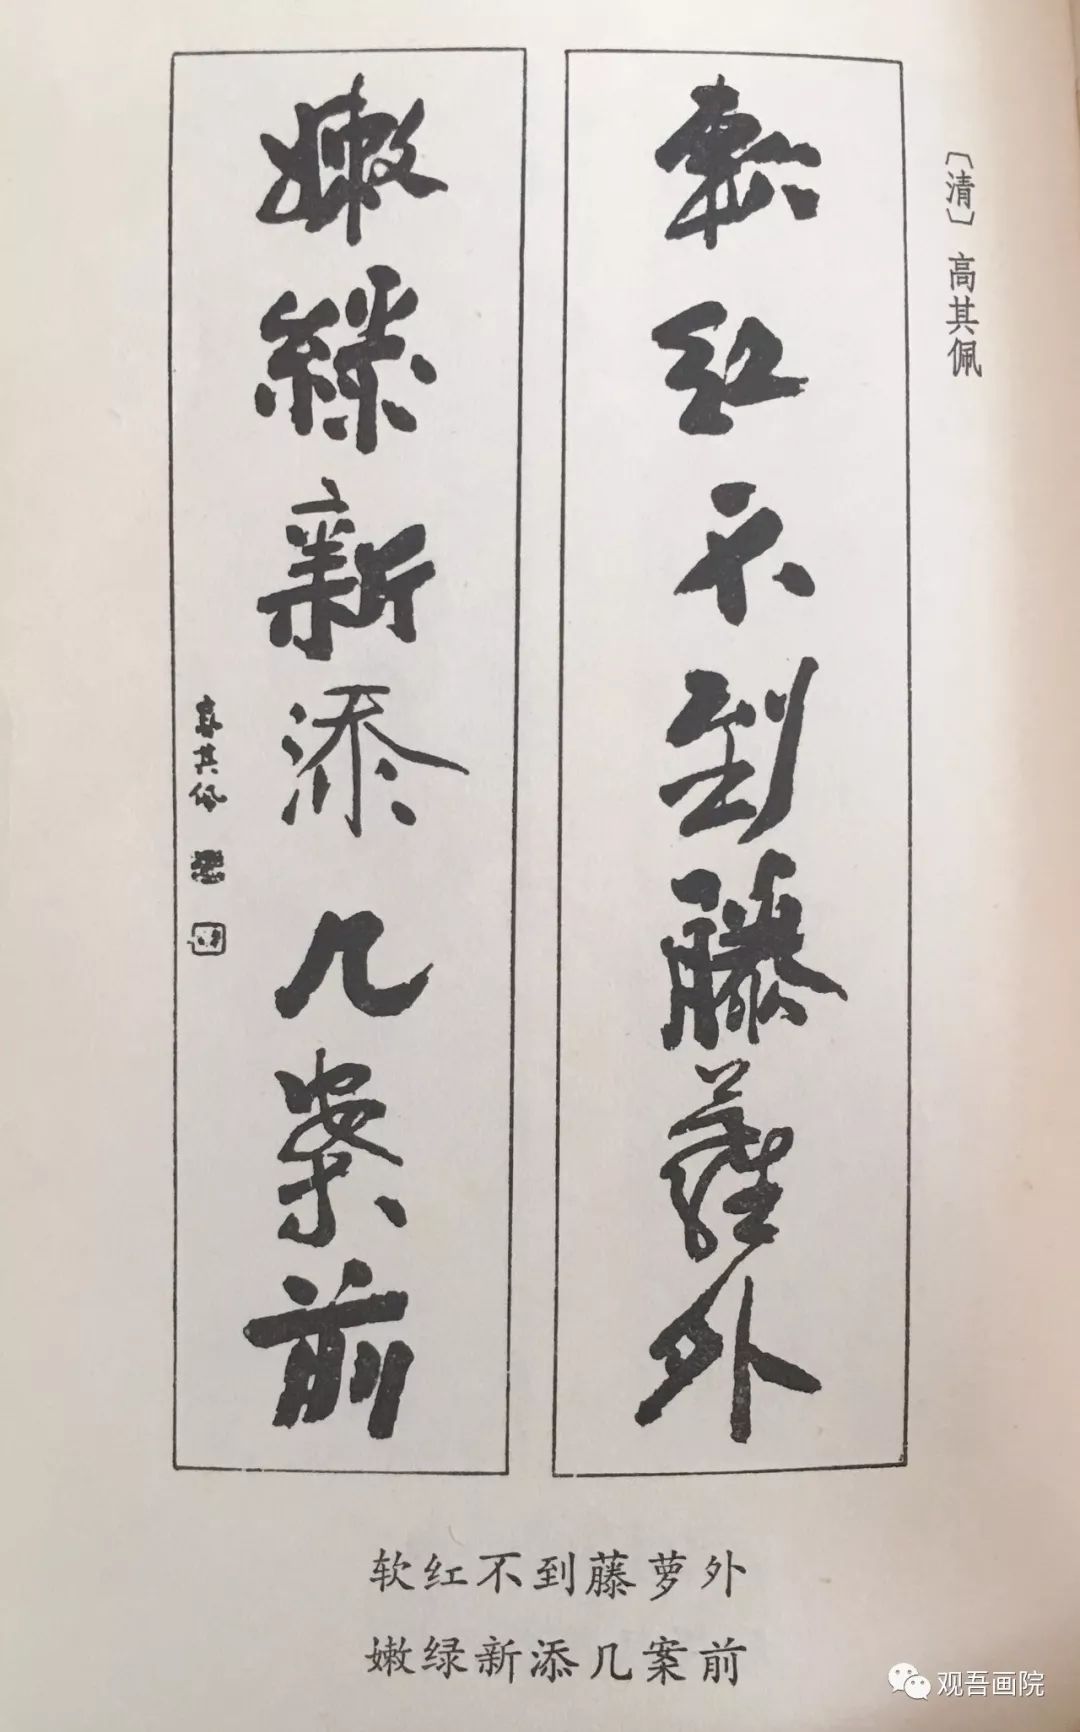 〔清〕高其佩
軟紅不到藤蘿外
嫩綠新添几案前
高其佩
软红不到藤萝外
嫩绿新添几案前
观吾画院